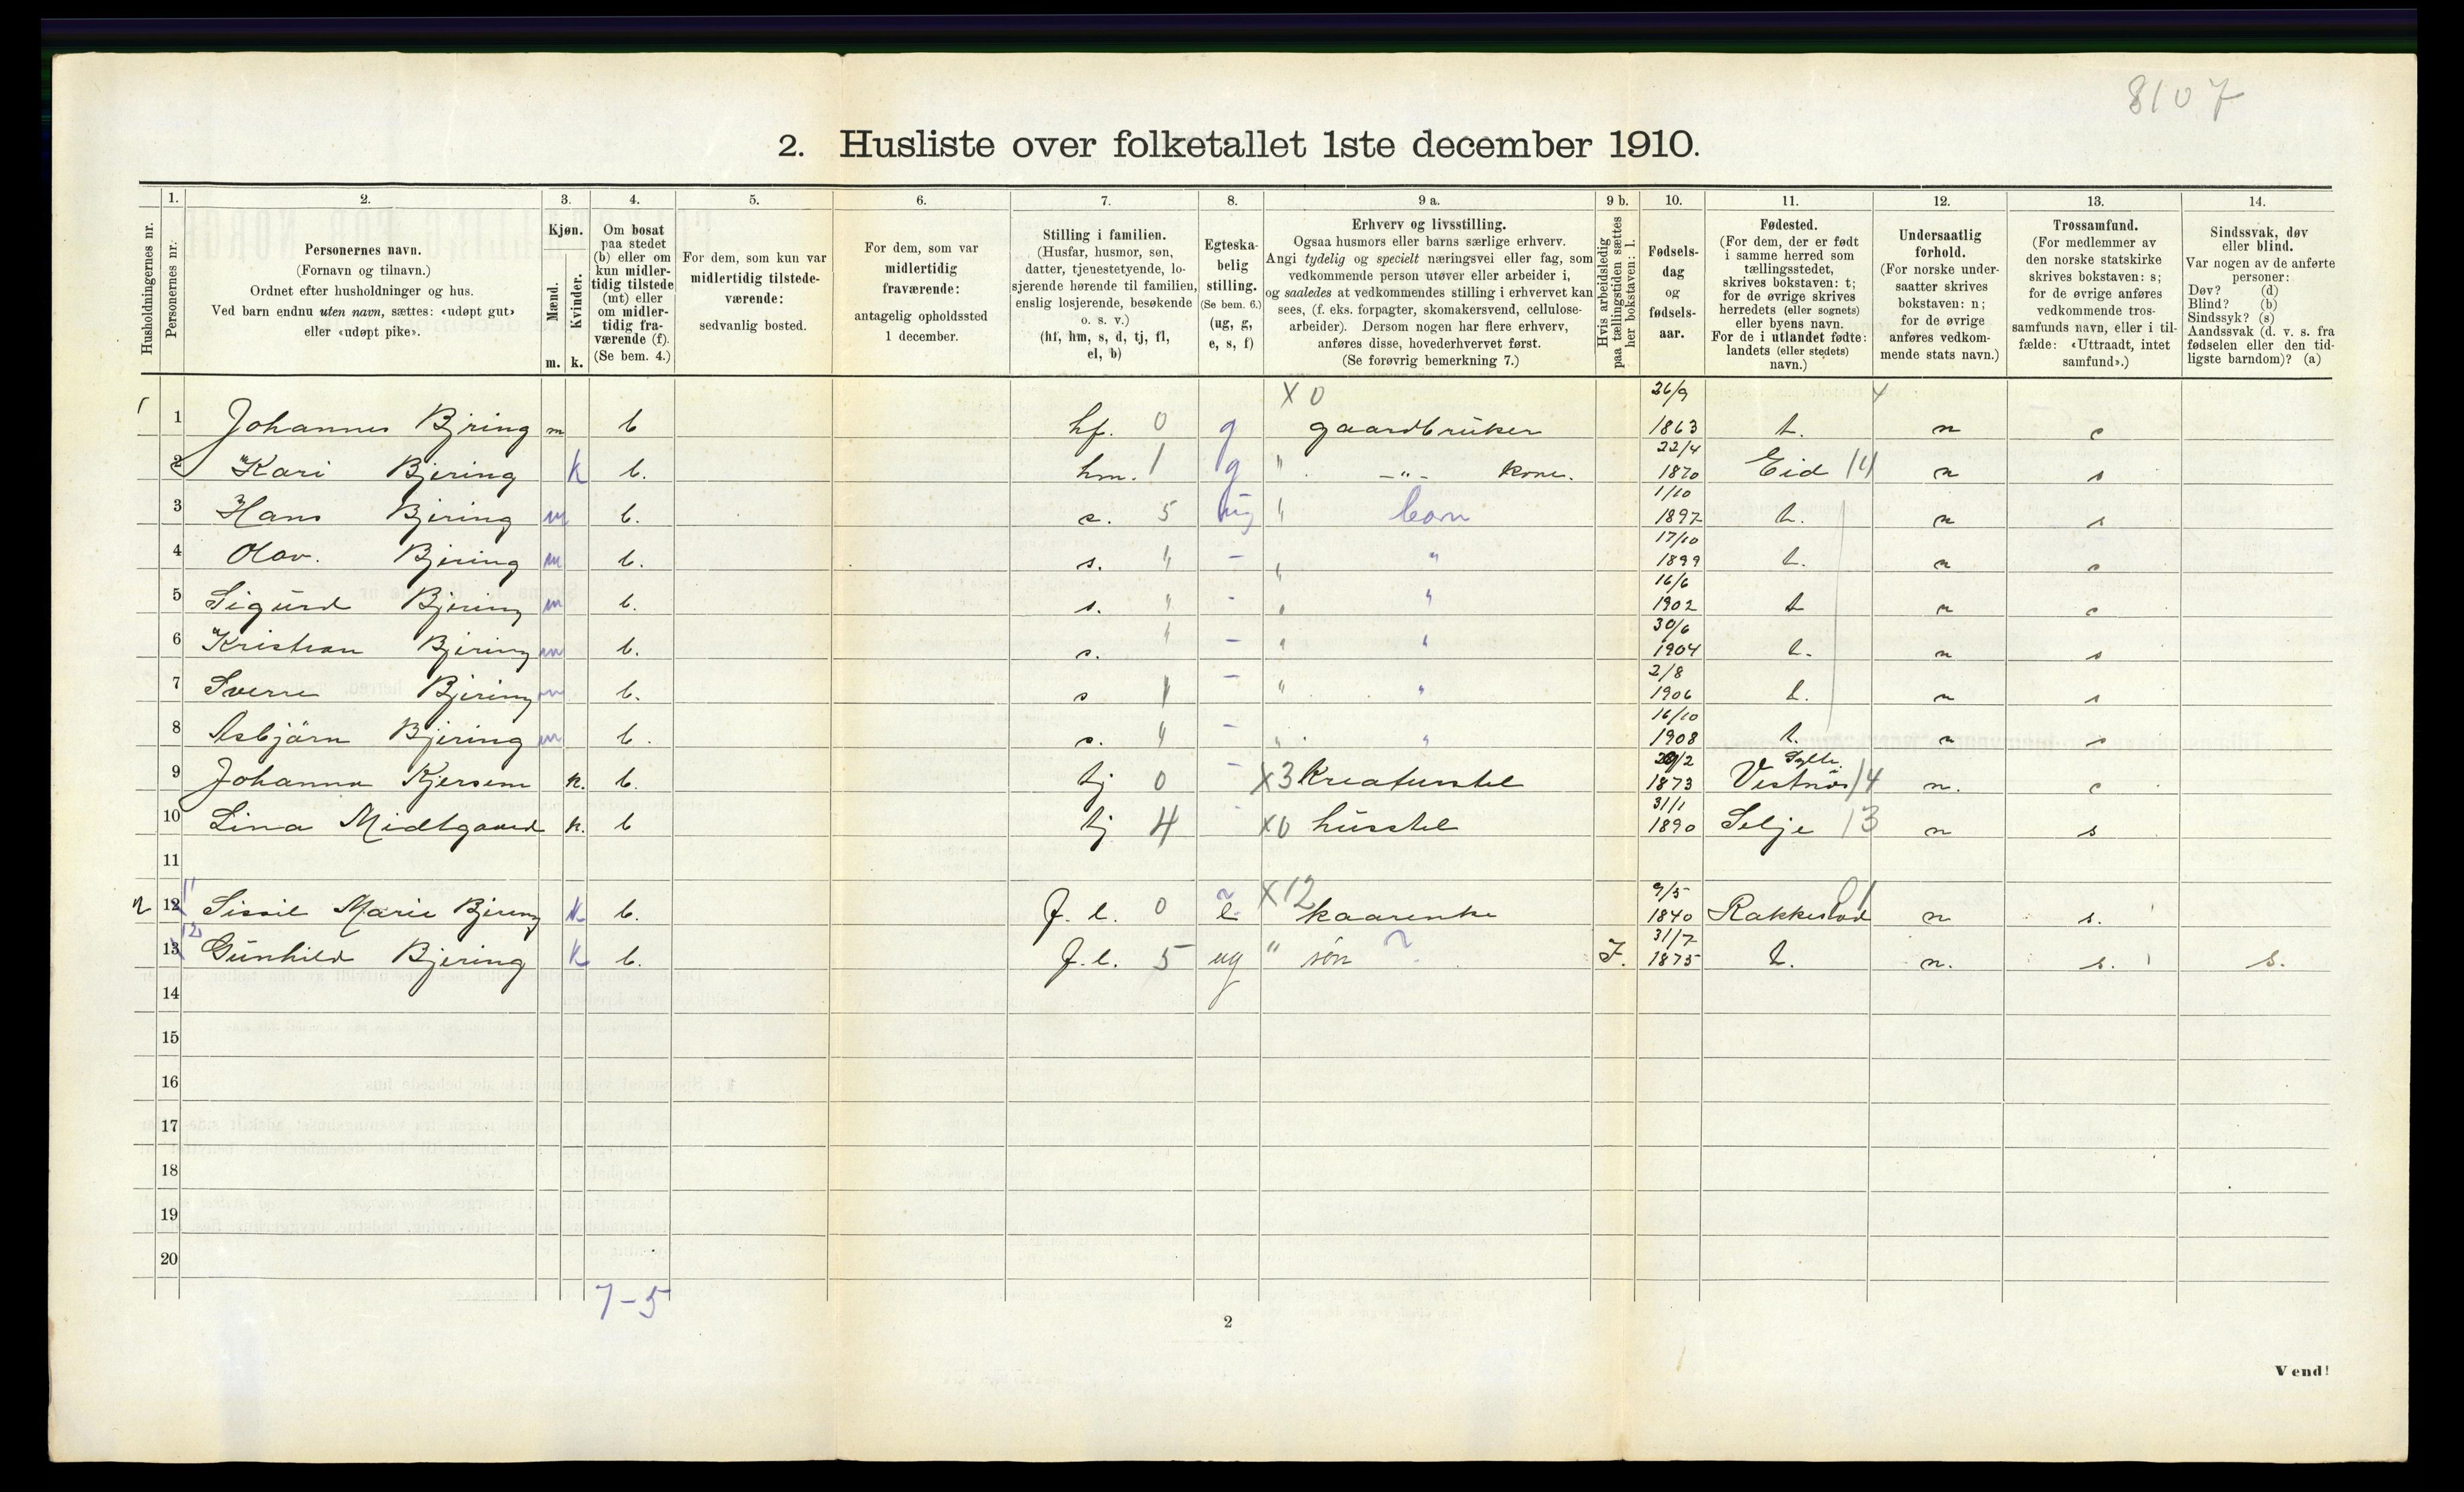 8107
2. Husliste over folketallet 1ste december 1910.
Husholdningernes nr.
1. Personernes nr.
2. Personernes navn. (Fornavn og tilnavn.) Ordnet efter husholdninger og hus. Ved barn endnu uten navn, sættes: «udøpt gut» eller «udøpt pike».
3. Kjøn. Mænd. m. Kvinder. k.
4. Om bosat paa stedet (b) eller om kun midlertidig tilstede (mt) eller om midlertidig fraværende (f). (Se bem. 4.)
5. For dem, som kun var midlertidig tilstedeværende: sedvanlig bosted.
6. For dem, som var midlertidig fraværende: antagelig opholdssted 1 december.
7. Stilling i familien. (Husfar, husmor, søn, datter, tjenestetyende, losjerende hørende til familien, enslig losjerende, besøkende o. s. v.) (hf, hm, s, d, tj, fl, el, b)
8. Egteskabelig stilling. (Se bem. 6.) (ug, g, e, s, f)
9 a. Erhverv og livsstilling. Ogsaa husmors eller barns særlige erhverv. Angi tydelig og specielt næringsvei eller fag, som vedkommende person utøver eller arbeider i, og saaledes at vedkommendes stilling i erhvervet kan sees, (f. eks. forpagter, skomakersvend, cellulosearbeider). Dersom nogen har flere erhverv, anføres disse, hovederhvervet først. (Se forøvrig bemerkning 7.)
9 b. Hvis arbeidsledig paa tællingstiden sættes her bokstaven: l.
10. Fødselsdag og fødselsaar.
11. Fødested. (For dem, der er født i samme herred som tællingsstedet, skrives bokstaven: t; for de øvrige skrives herredets (eller sognets) eller byens navn. For de i utlandet fødte: landets (eller stedets) navn.)
12. Undersaatlig forhold. (For norske undersaatter skrives bokstaven: n; for de øvrige anføres vedkommende stats navn.)
13. Trossamfund. (For medlemmer av den norske statskirke skrives bokstaven: s; for de øvrige anføres vedkommende trossamfunds navn, eller i tilfælde: «Uttraadt, intet samfund».)
14. Sindssvak, døv eller blind. Var nogen av de anførte personer: Døv? (d) Blind? (b) Sindssyk? (s) Aandssvak (d. v. s. fra fødselen eller den tidligste barndom)? (a)
1 1 Johannes Bjring m b hf. 0 g X0 gaardbruker 26/9 1863 t. n s
2 Kari Bjering k b. hm. 1 g " -"- kone. 22/4 1870 Eid 14 n s
3 Hans Bjering m b. s. 5 ug " barn 1/10 1897 t. n s
4 Olav. Bjering m b. s. " - " " 17/10 1899 t. n s
5 Sigurd Bjering m b. s. " - " " 16/6 1902 t n s
6 Kristian Bjering m b. s. " - " " 30/6 1904 t. n s
7 Sverre Bjering m b. s " - " " 2/8 1906 t. n s
8 Asbjörn Bjering m b. s. " - " " 16/10 1908 t. n s
9 Johanna Kjersem k. b. tj 0 - X3 Kreaturstel /2 1873 Vestnæs 14 n. s
10 Lina Midtgaard k. b tj 4 - X0 husstel 31/1 1890 Selje 13 n s
11
2 12 11 Sissil Marie Bjering k b. f. l. 0 e X12 kaarenke 9/5 1840 Rakkestad 01 n s.
13 12 Gunhild Bjering k b. f.l. 5 ug " sön 31/7 1875 t. n. s. s.
14
15
16
17
18
19
20
7-5
2
Vend!